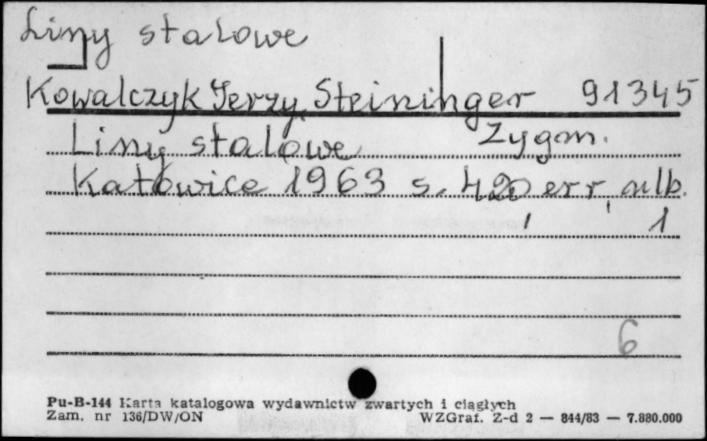 Liny stalowe
Kowalczyk Jerzy, Steininger 91345
Zygm.
Liny stalowe
Katowice 1963 s. 420 err, alb.
1
6
Pu-B-144 Karta katalogowa wydawnictw zwartych i ciągłych
Zam. nr 136/DW/ON WZGraf. Z-d 2 — 844/83 — 7.880.000